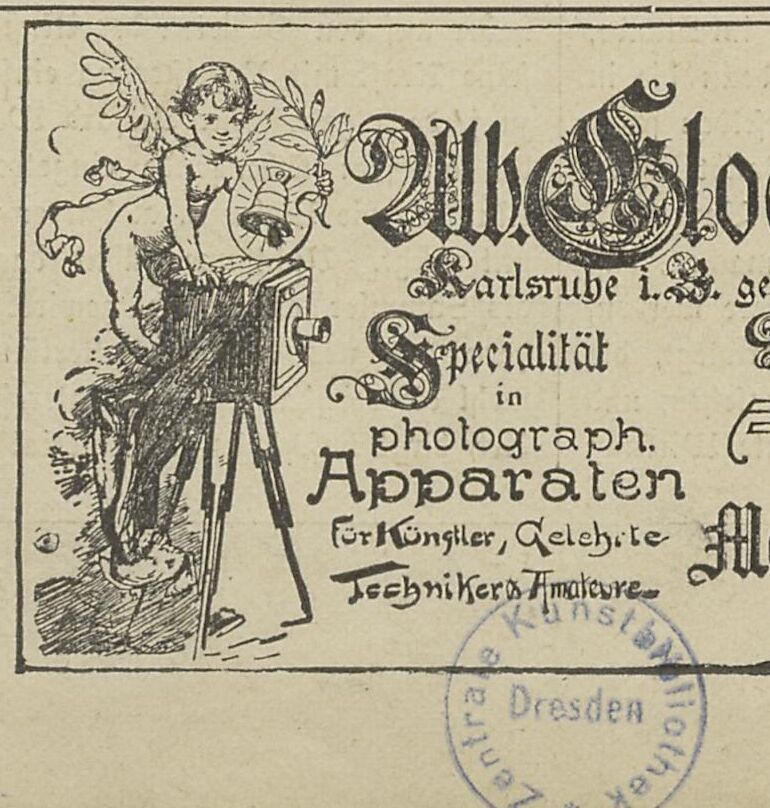 Alb. Glo
Karlsruhe i. B. ge
Specialität
in
photograph.
Apparaten
für Künstler, Gelehrte
Techniker & Amateure
Zentrale Kunstbibliothek
Dresden